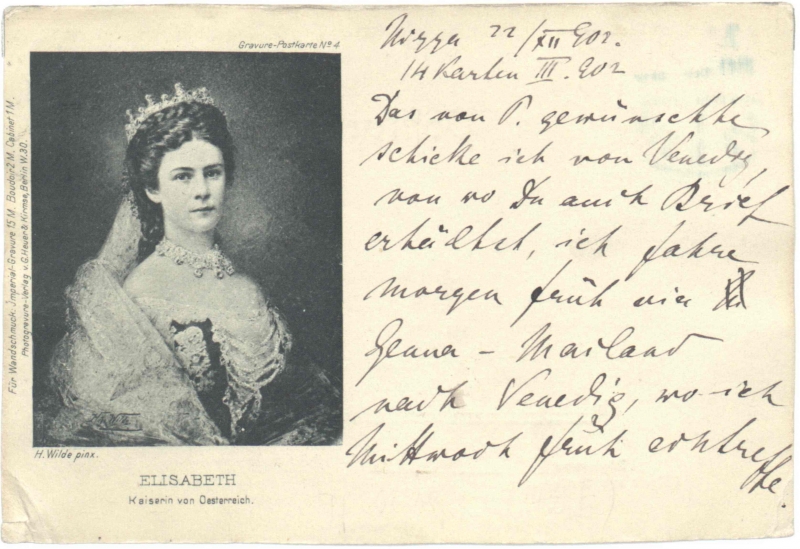 Gravure-Postkarte Nº 4
Für Wandschmuck: Imperial-Gravure 15 M. Boudoir 2 M. Cabinet 1 M.
Photogravure-Verlag v. G. Heuer & Kirmse, Berlin W. 30.
H. Wilde pinx.
ELISABETH
Kaiserin von Oesterreich.
Nizza 22/XII 902.
14 Karten III. 902
Das von P. gewünschte
schicke ich von Venedig,
von wo Du auch Brief
erhältst, ich fahre
morgen früh via
Genua – Mailand
nach Venedig, wo ich
Mittwoch früh eintreffe.